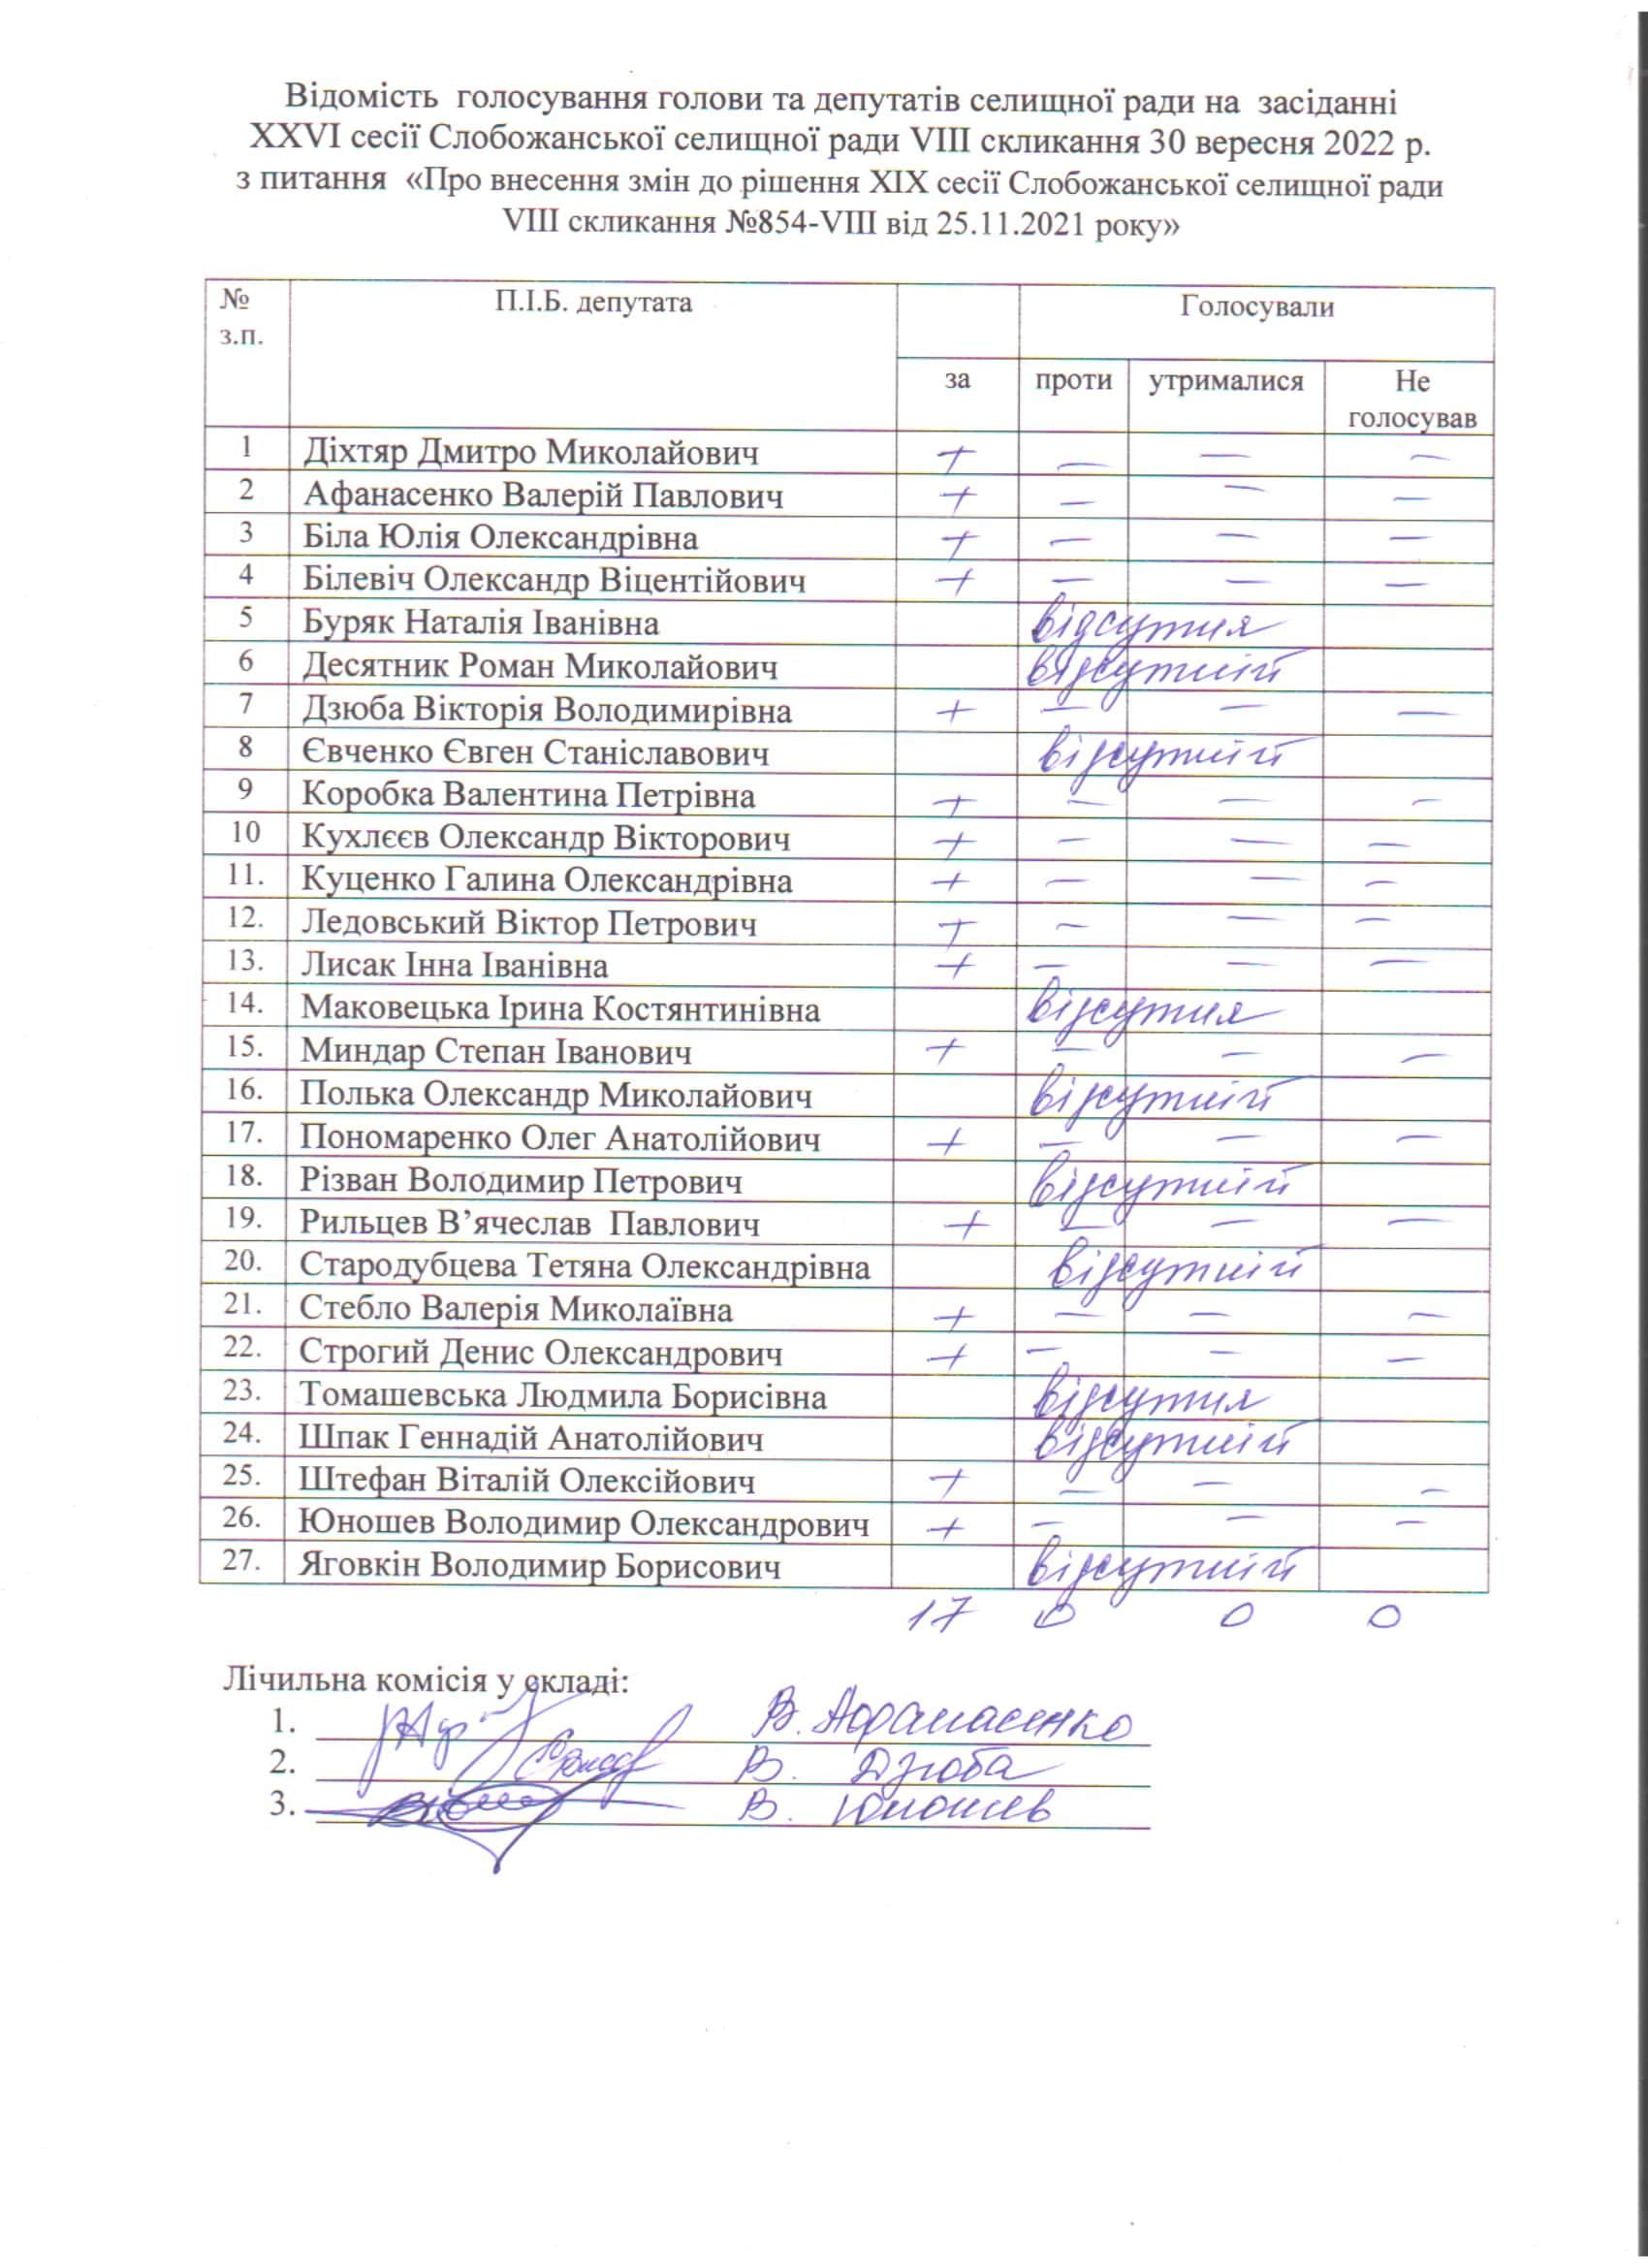 Відомість голосування голови та депутатів селищної ради на засіданні
XXVI сесії Слобожанської селищної ради VIII скликання 30 вересня 2022 р.
з питання «Про внесення змін до рішення XIX сесії Слобожанської селищної ради
VIII скликання №854-VIII від 25.11.2021 року»
№ з.п. П.І.Б. депутата Голосували
за проти утрималися Не голосував
1 Діхтяр Дмитро Миколайович + — — —
2 Афанасенко Валерій Павлович + — — —
3 Біла Юлія Олександрівна + — — —
4 Білевіч Олександр Віцентійович + — — —
5 Буряк Наталія Іванівна відсутня
6 Десятник Роман Миколайович відсутній
7 Дзюба Вікторія Володимирівна + — — —
8 Євченко Євген Станіславович відсутній
9 Коробка Валентина Петрівна + — — —
10 Кухлєєв Олександр Вікторович + — — —
11. Куценко Галина Олександрівна + — — —
12. Ледовський Віктор Петрович + — — —
13. Лисак Інна Іванівна + — — —
14. Маковецька Ірина Костянтинівна відсутня
15. Миндар Степан Іванович + — — —
16. Полька Олександр Миколайович відсутній
17. Пономаренко Олег Анатолійович + — — —
18. Різван Володимир Петрович відсутній
19. Рильцев В’ячеслав Павлович + — — —
20. Стародубцева Тетяна Олександрівна відсутній
21. Стебло Валерія Миколаївна + — — —
22. Строгий Денис Олександрович + — — —
23. Томашевська Людмила Борисівна відсутня
24. Шпак Геннадій Анатолійович відсутній
25. Штефан Віталій Олексійович + — — —
26. Юношев Володимир Олександрович + — — —
27. Яговкін Володимир Борисович відсутній
17 0 0 0
Лічильна комісія у складі:
1. В. Афанасенко
2. В. Дзюба
3. В. Юношев